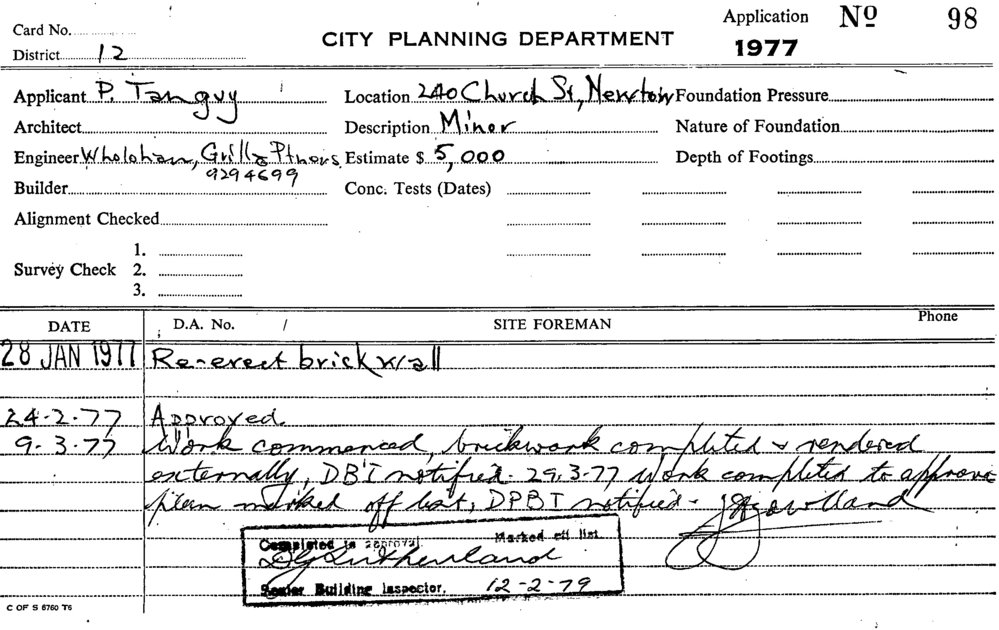 Card No.
Application Nº 98
District 12
CITY PLANNING DEPARTMENT
1977
Applicant P. Tanguy Location 240 Church St, Newtown Foundation Pressure
Architect Description Minor Nature of Foundation
Engineer Wholohan, Grill & Ptners Estimate $ 5,000 Depth of Footings
9294699
Builder Conc. Tests (Dates)
Alignment Checked
1.
Survey Check 2.
3.
DATE D.A. No. / SITE FOREMAN Phone
28 JAN 1977 Re-erect brick wall
24-2-77 Approved.
9-3-77 Work commenced, brickwork completed & rendered
externally, DBI notified. 29.3.77 work completed to approve
plan marked off list, DPBI notified -
Completed in approval. Marked off list.
D G Sutherland
Senior Building Inspector. 12-2-79
C OF S 6760 T6